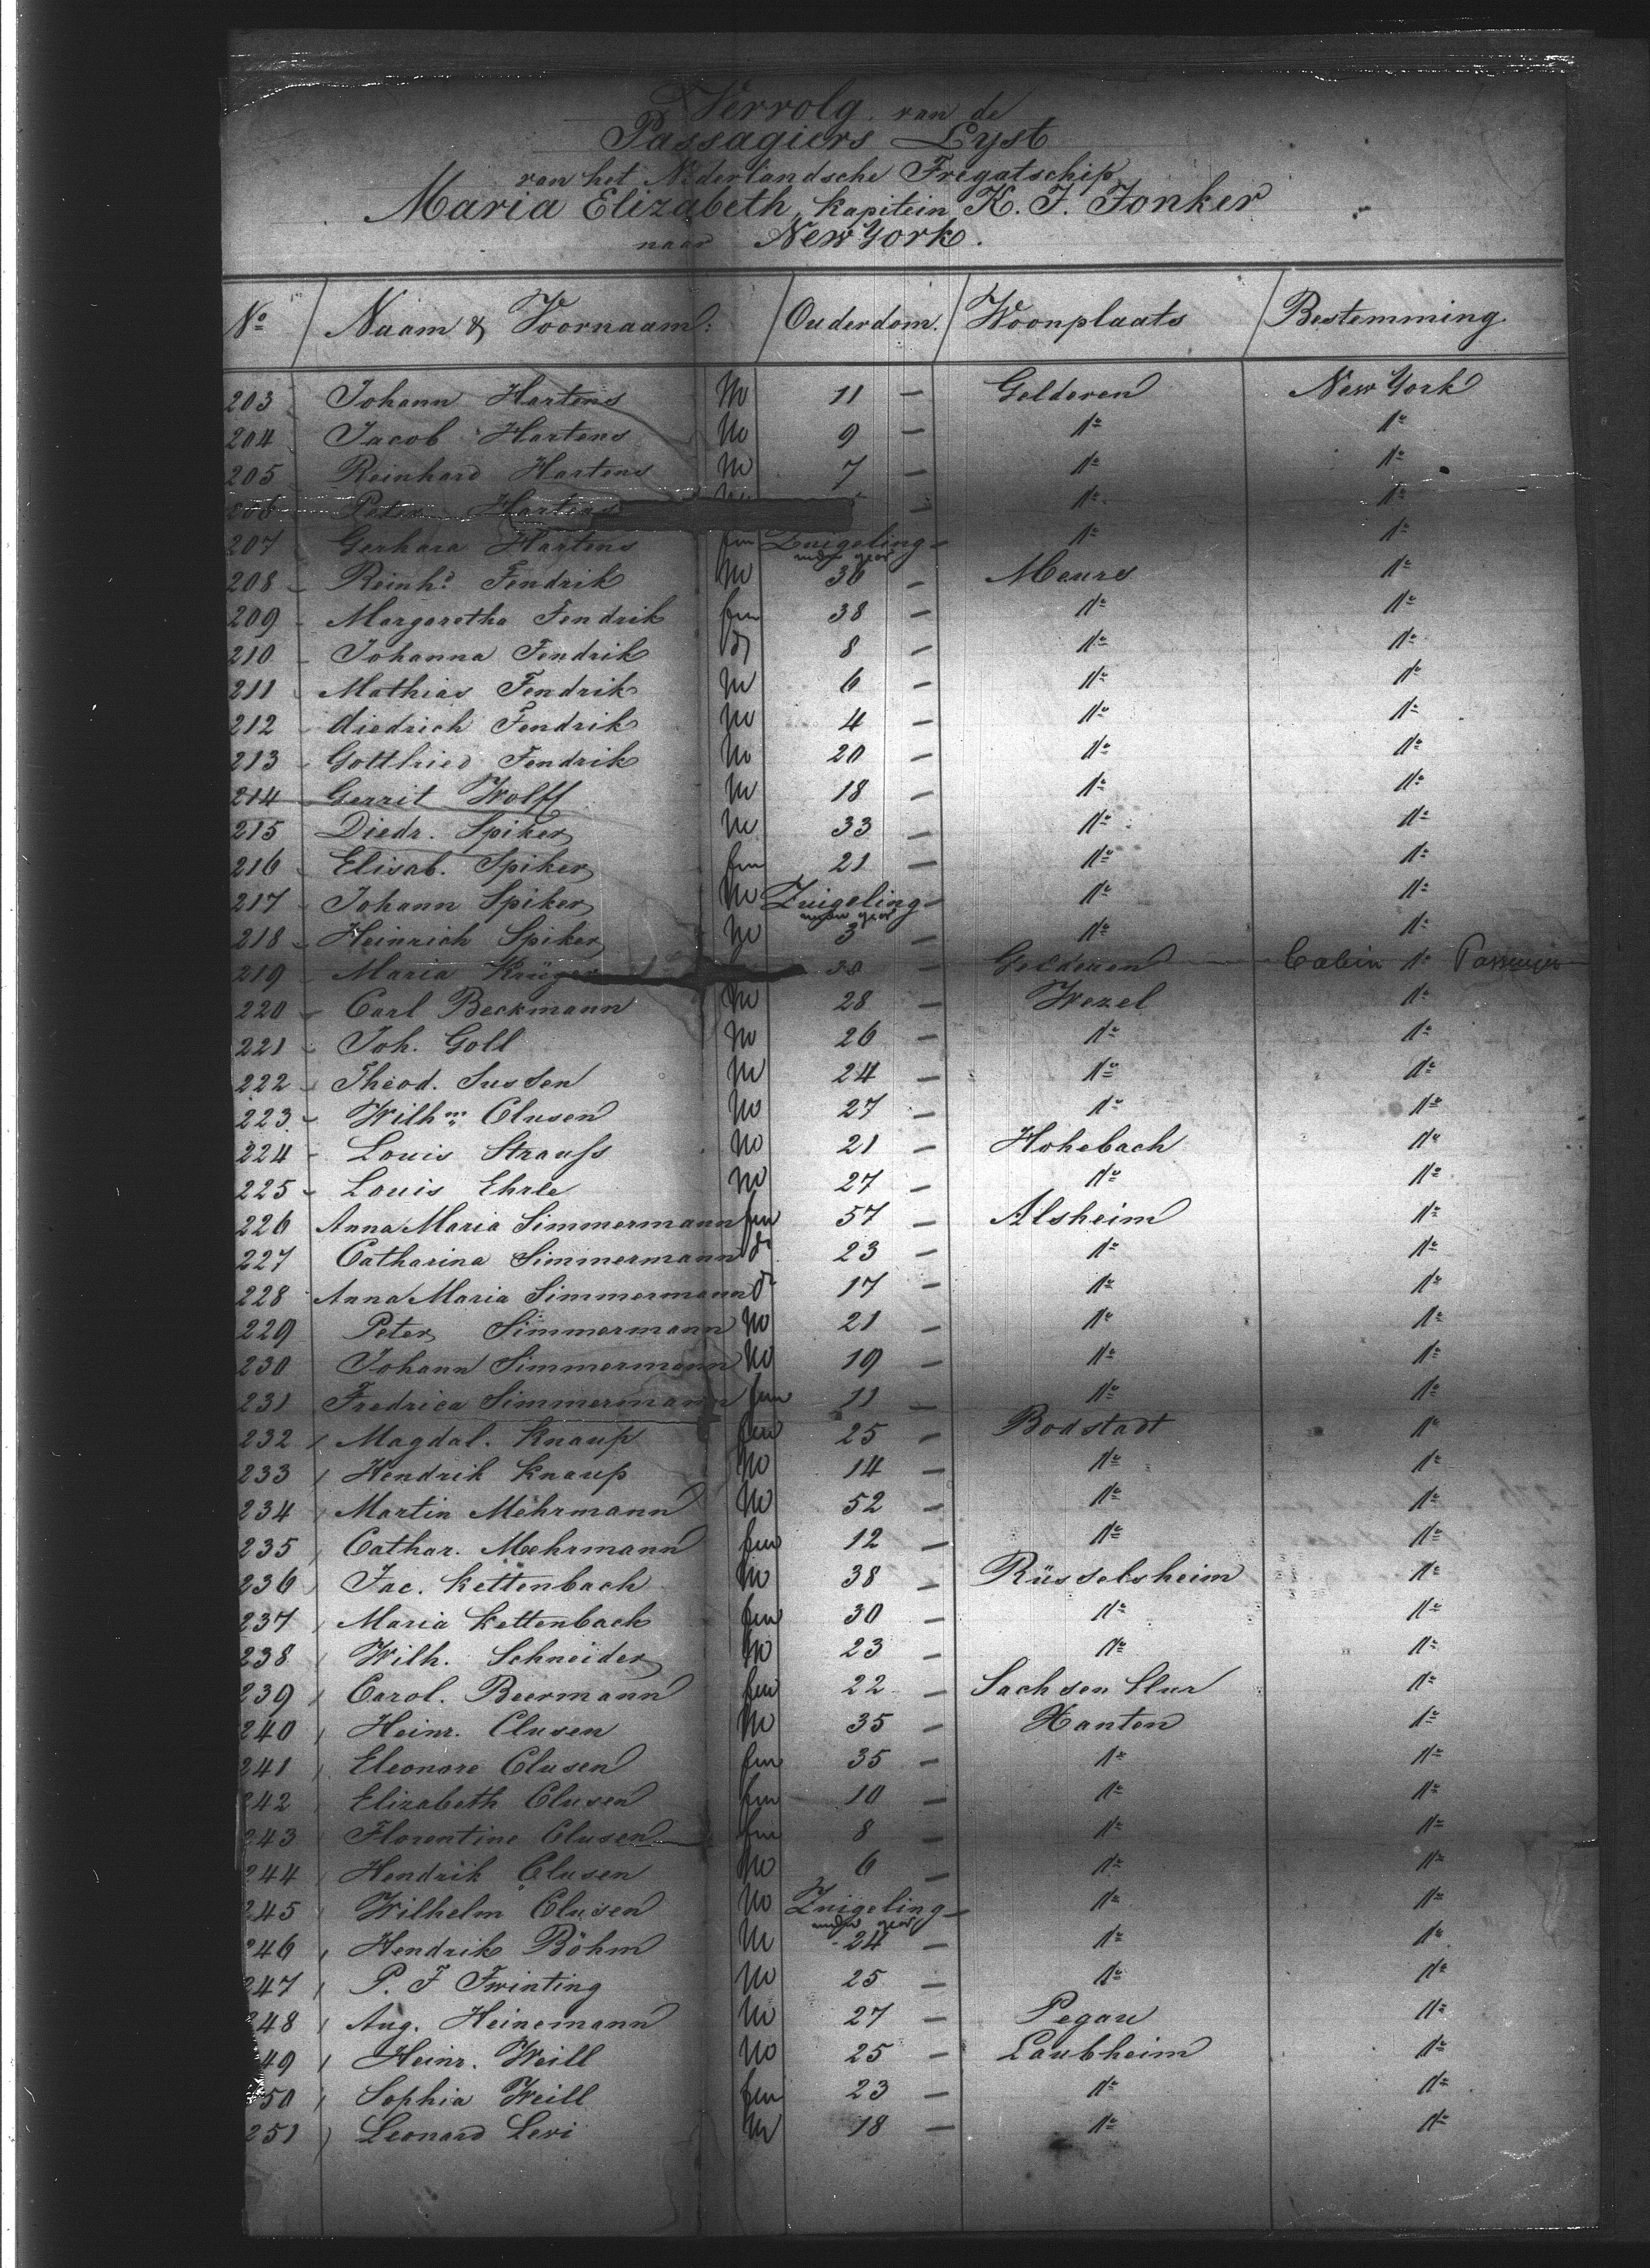 Vervolg van de
Passagiers Lyst
van het Nederlandsche Fregatschip
Maria Elizabeth, Kapitein K. J. Jonker
naar New York.
No Naam & Voornaam: Ouderdom. Woonplaats Bestemming
203 Johann Hartens m 11 — Gelderen New York
204 Jacob Hartens m 9 — do do
205 Reinhard Hartens m 7 — do do
206 Peter Hartens — do do
207 Gerhara Hartens fm Zuigeling — do do
under year
208 Reinhd Fendrik m 36 — Meurs do
209 Margaretha Fendrik fm 38 — do do
210 Johanna Fendrik do 8 — do do
211 Mathias Fendrik m 6 — do do
212 diedrich Fendrik m 4 — do do
213 Gottfried Fendrik m 20 — do do
214 Gerrit Wolff m 18 — do do
215 Diedr. Spiker m 33 — do do
216 Elisab. Spiker fm 21 — do do
217 Johann Spiker m Zuigeling — do do
under year
218 Heinrich Spiker m 3 — do do
219 Maria Krüger — Gelderen Cabin do Passenger
220 Carl Beckmann m 28 — Wezel do
221 Joh. Goll m 26 — do do
222 Theod. Sussen m 24 — do do
223 Wilhm Clusen m 27 — do do
224 Louis Strauss m 21 — Hohebach do
225 Louis Ehrle m 27 — do do
226 Anna Maria Simmermann fm 57 — Alsheim do
227 Catharina Simmermann do 23 — do do
228 Anna Maria Simmermann do 17 — do do
229 Peter Simmermann m 21 — do do
230 Johann Simmermann m 19 — do do
231 Fredrica Simmermann fm 11 — do do
232 Magdal. Knaup fm 25 — Bodstadt do
233 Hendrik Knaup m 14 — do do
234 Martin Mehrmann m 52 — do do
235 Cathar. Mehrmann fm 12 — do do
236 Jac. Kettenbach m 38 — Rüsselsheim do
237 Maria Kettenbach fm 30 — do do
238 Wilh. Schneider m 23 — do do
239 Carol. Beermann fm 22 — Sachsen do
240 Heinr. Clusen m 35 — Xanten do
241 Eleonore Clusen fm 35 — do do
242 Elizabeth Clusen fm 10 — do do
243 Florentine Clusen fm 8 — do do
244 Hendrik Clusen m 6 — do do
245 Wilhelm Clusen m Zuigeling — do do
under year
246 Hendrik Böhm m 24 — do do
247 P. F Fwinting m 25 — do do
248 Aug. Heinemann m 27 — Pegau do
249 Heinr. Weill m 25 — Laubheim do
250 Sophia Weill fm 23 — do do
251 Leonard Levi m 18 — do do